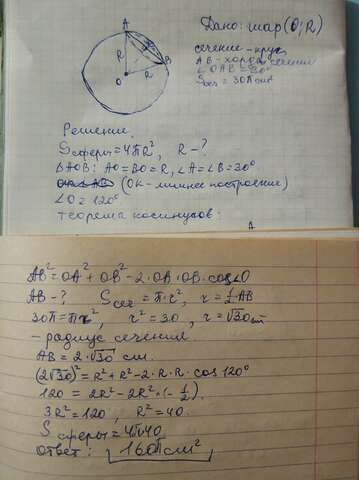 A
B
R
R
O
Дано: шар (O; R)
сечение - круг
AB - хорда сечения
∠OAB = 30°
Sсеч = 30π см²
Решение.
Sсферы = 4πR², R - ?
ΔAOB: AO = BO = R, ∠A = ∠B = 30°
(OK - лишнее построение)
∠O = 120°
теорема косинусов:
AB² = OA² + OB² - 2·OA·OB·cos∠O
AB - ? Sсеч = π·r², r = ½ AB
30π = πr², r² = 30, r = √30 см
- радиус сечения
AB = 2·√30 см.
(2√30)² = R² + R² - 2·R·R·cos 120°
120 = 2R² - 2R²·(-½).
3R² = 120, R² = 40.
Sсферы = 4π·40
Ответ: 160π см²